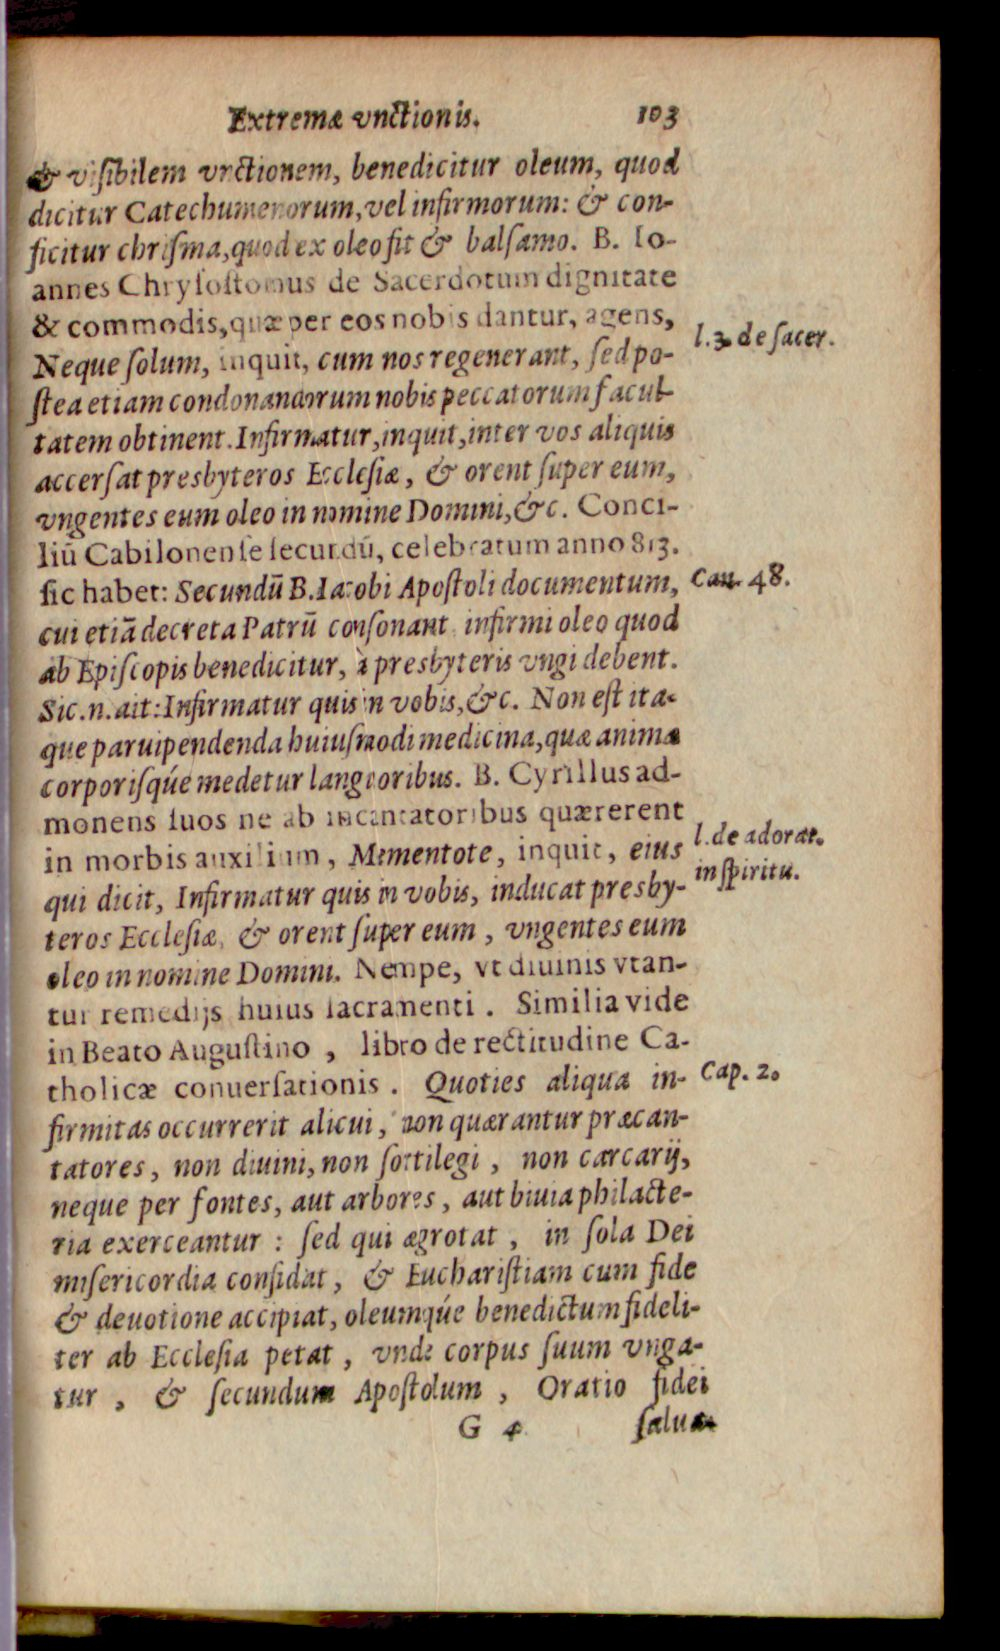 Extremæ vnctionis. 103
& visibilem vnctionem, benedicitur oleum, quod
dicitur Catechumenorum, vel infirmorum: & con-
ficitur chrisma, quod ex oleo fit & balsamo. B. Io-
annes Chrysostomus de Sacerdotum dignitate
& commodis, quæ per eos nobis dantur, agens,
l. 3. de sacer.
Neque solum, inquit, cum nos regenerant, sed po-
stea etiam condonandorum nobis peccatorum facul-
tatem obtinent. Infirmatur, inquit, inter vos aliquis
accersat presbyteros Ecclesiæ, & orent super eum,
vngentes eum oleo in nomine Domini, &c. Conci-
liū Cabilonense secundū, celebratum anno 813.
sic habet: Secundū B. Iacobi Apostoli documentum,
Can. 48.
cui etiā decreta Patrū consonant infirmi oleo quod
ab Episcopis benedicitur, à presbyteris vngi debent.
Sic. n. ait: Infirmatur quis in vobis, &c. Non est ita-
que paruipendenda huiusmodi medicina, quæ animæ
corporisqúe medetur languoribus. B. Cyrillus ad-
monens suos ne ab incantatoribus quærerent
in morbis auxilium, Mementote, inquit, eius
l. de adorat.
in spiritu.
qui dicit, Infirmatur quis in vobis, inducat presby-
teros Ecclesiæ, & orent super eum, vngentes eum
oleo in nomine Domini. Nempe, vt diuinis vtan-
tur remedijs huius sacramenti. Similia vide
in Beato Augustino, libro de rectitudine Ca-
tholicæ conuersationis. Quoties aliqua in-
Cap. 2.
firmitas occurrerit alicui, non quærantur præcan-
tatores, non diuini, non sortilegi, non carcarij,
neque per fontes, aut arbores, aut biuia philacte-
ria exerceantur: sed qui ægrotat, in sola Dei
misericordia confidat, & Eucharistiam cum fide
& deuotione accipiat, oleumqúe benedictum fideli-
ter ab Ecclesia petat, vnde corpus suum vnga-
tur, & secundum Apostolum, Oratio fidei
G 4 salua-